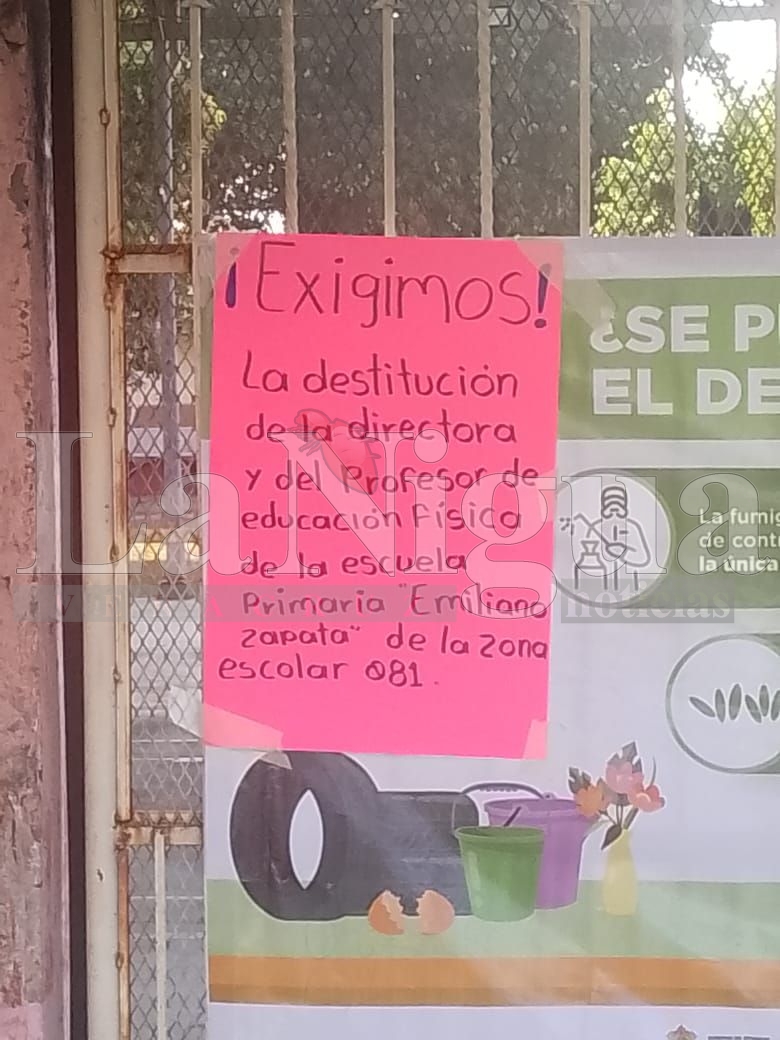 ¡Exigimos!
La destitución
de la directora
y del Profesor de
educación Física
de la escuela
Primaria "Emiliano
zapata" de la zona
escolar 081.
¿SE P
EL DE
La fumi
de cont
la única
LaNigua
noticias